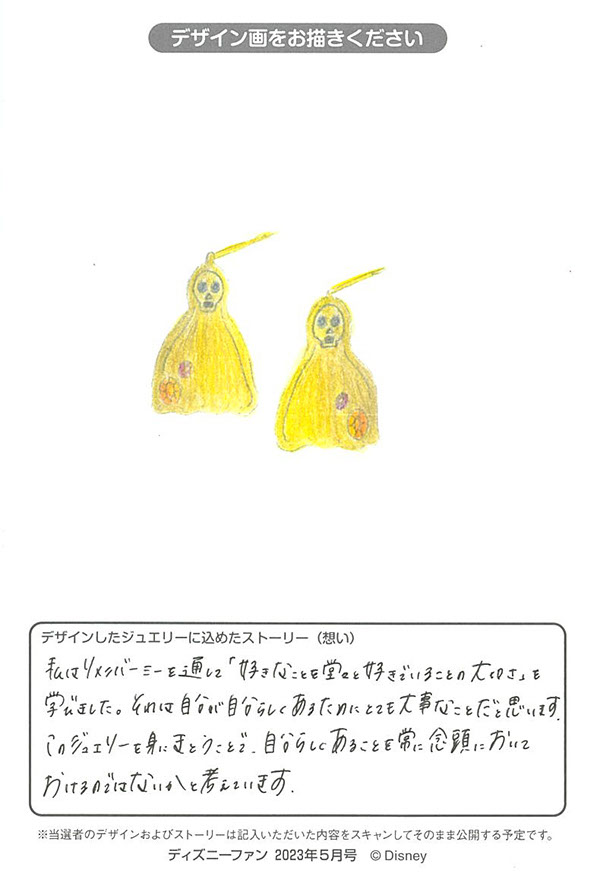 デザイン画をお描きください
デザインしたジュエリーに込めたストーリー（想い）
私はリメンバーミーを通して「好きなことを堂々と好きでいることの大切さ」を
学びました。それは自分が自分らしくあるためにとても大事なことだと思います。
このジュエリーを身にまとうことで、自分らしくあることを常に念頭において
おけるのではないかと考えています。
※当選者のデザインおよびストーリーは記入いただいた内容をスキャンしてそのまま公開する予定です。
ディズニーファン 2023年5月号 ©Disney